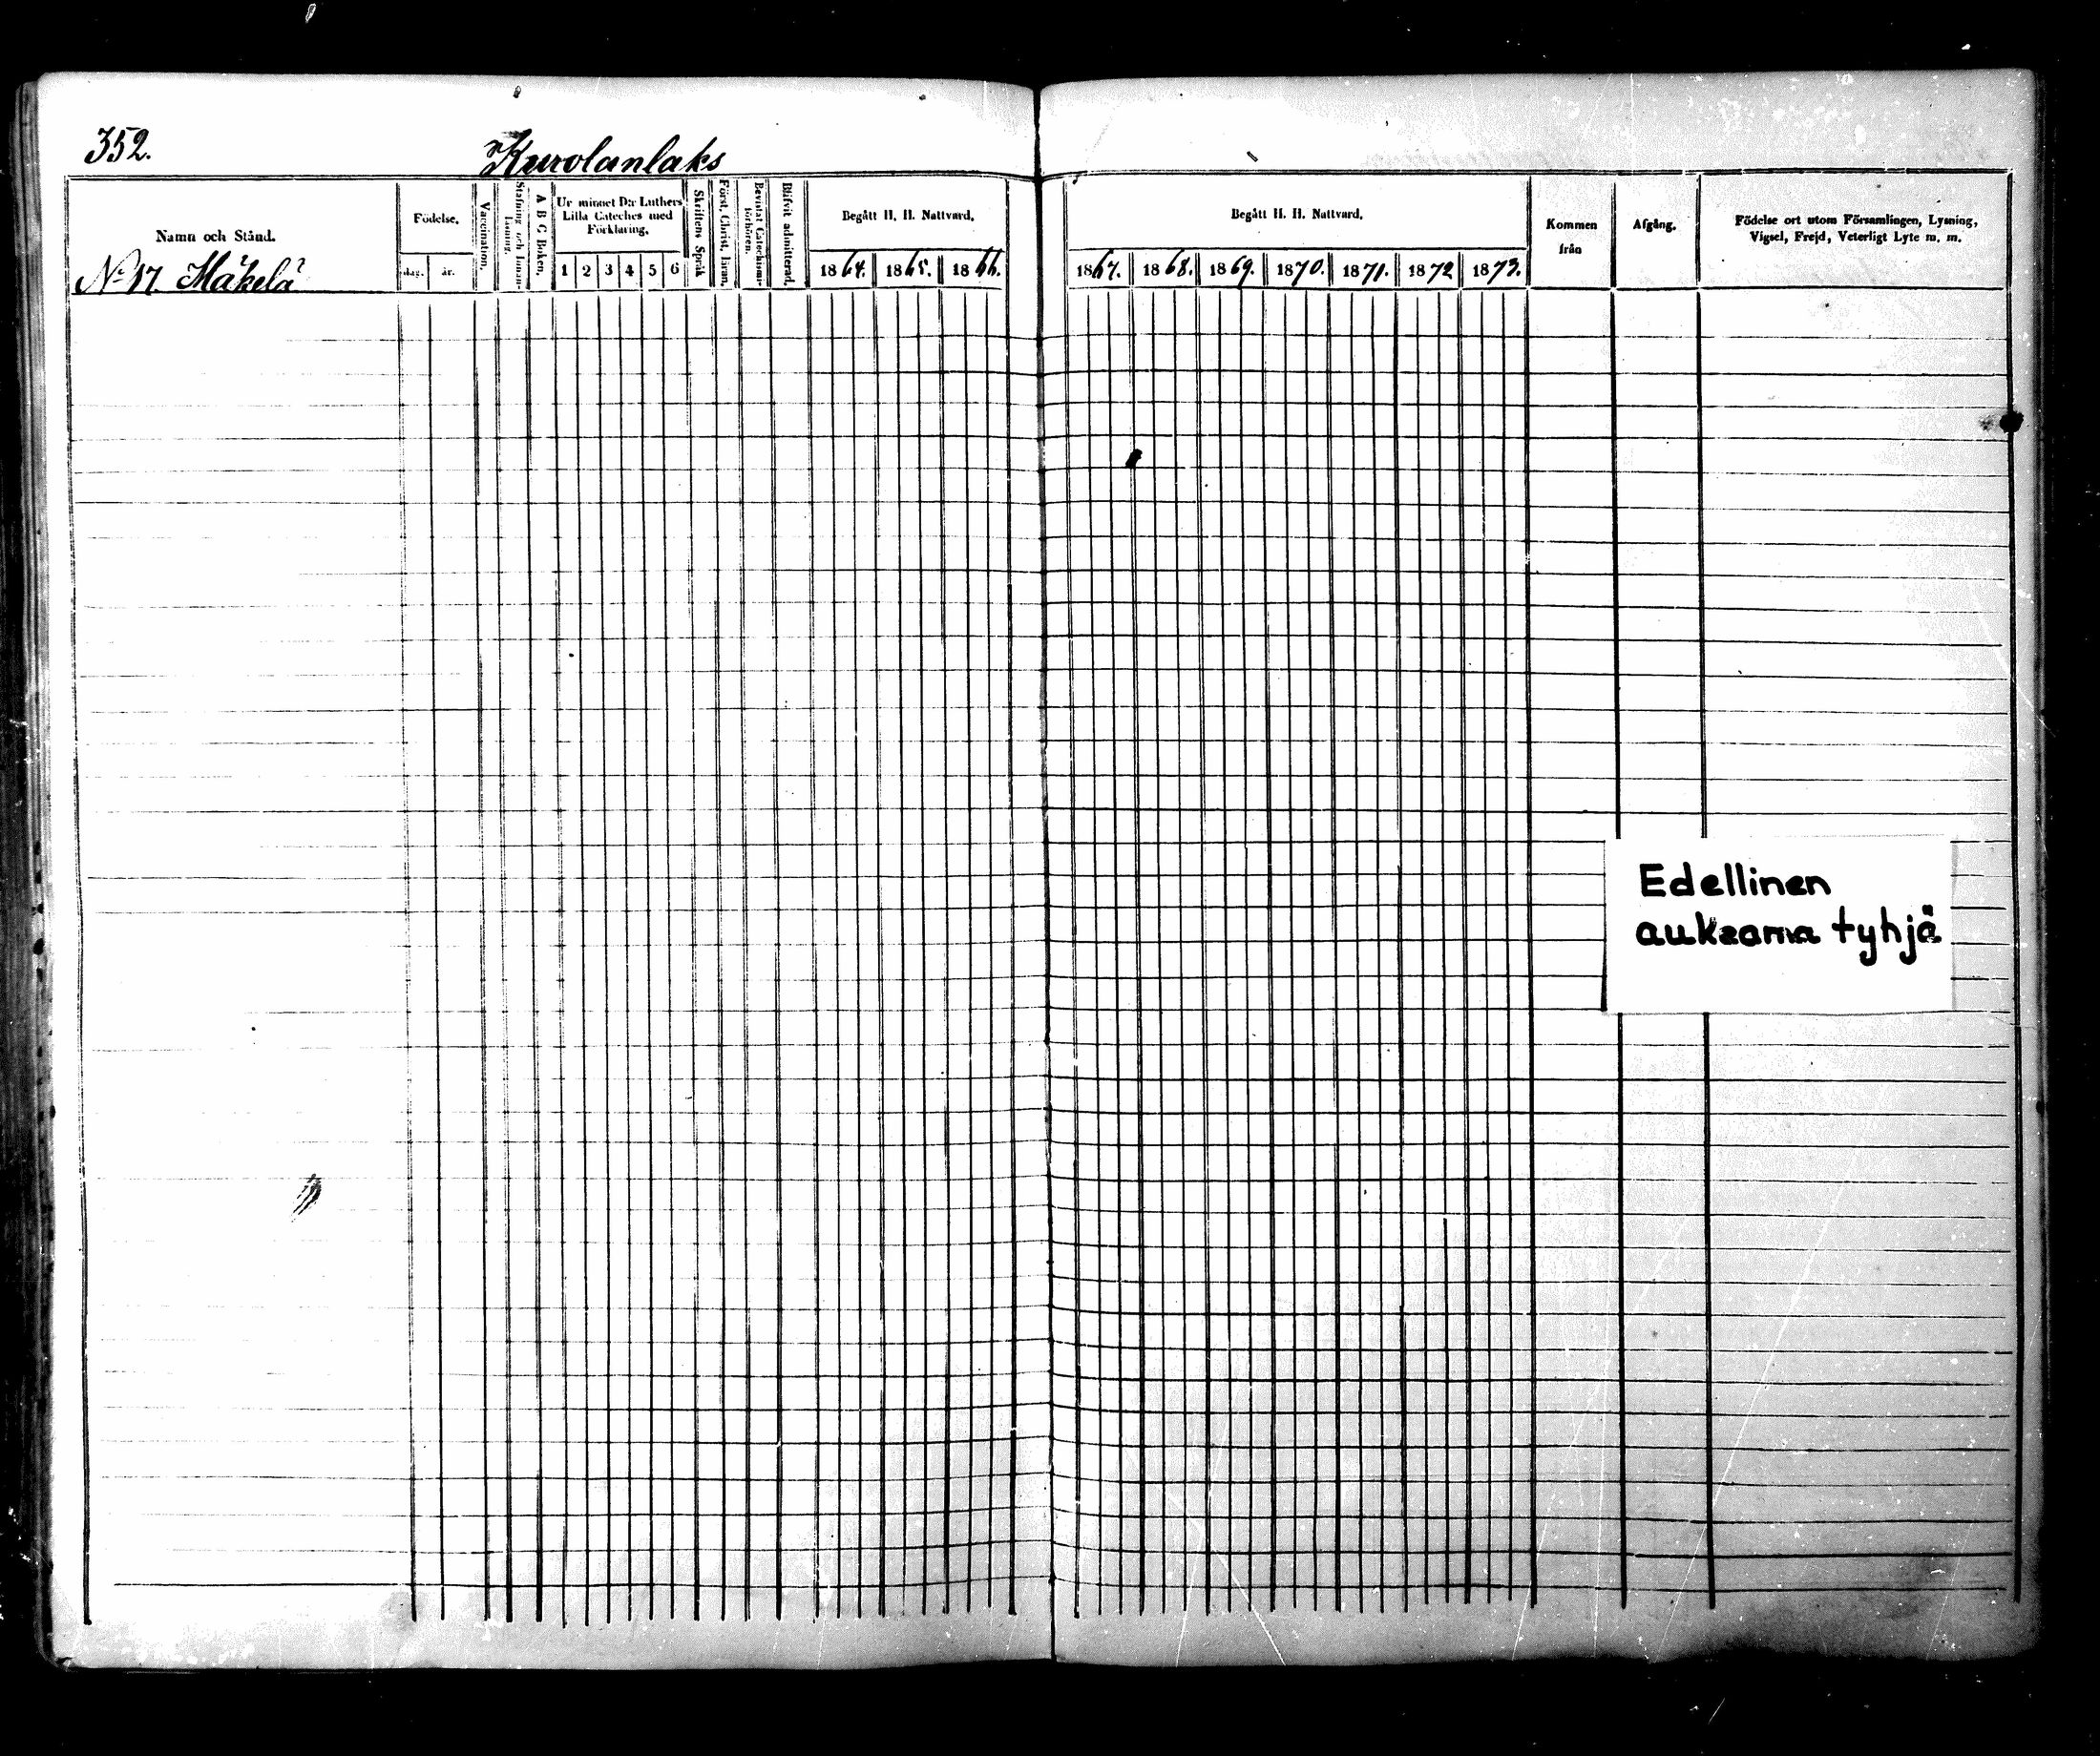 352.
Kurolanlaks
Namn och Stånd.
No 17. Mäkelä
Födelse.
dag. år.
Vaccination.
Stafning och Innan-Läsning.
A B C Boken.
Ur minnet D:r Luthers
Lilla Cateches med
Förklaring.
1 2 3 4 5 6
Skriftens Språk
Först. Christ. läran.
Bevistat Catechismi-förhören.
Blifvit admitterad.
Begått H. H. Nattvard.
1864. 1865. 1866.
Begått H. H. Nattvard.
1867. 1868. 1869. 1870. 1871. 1872 1873.
Kommen
från
Afgång.
Födelse ort utom Församlingen, Lysning,
Vigsel, Frejd, Veterligt Lyte m. m.
Edellinen
aukeama tyhjä